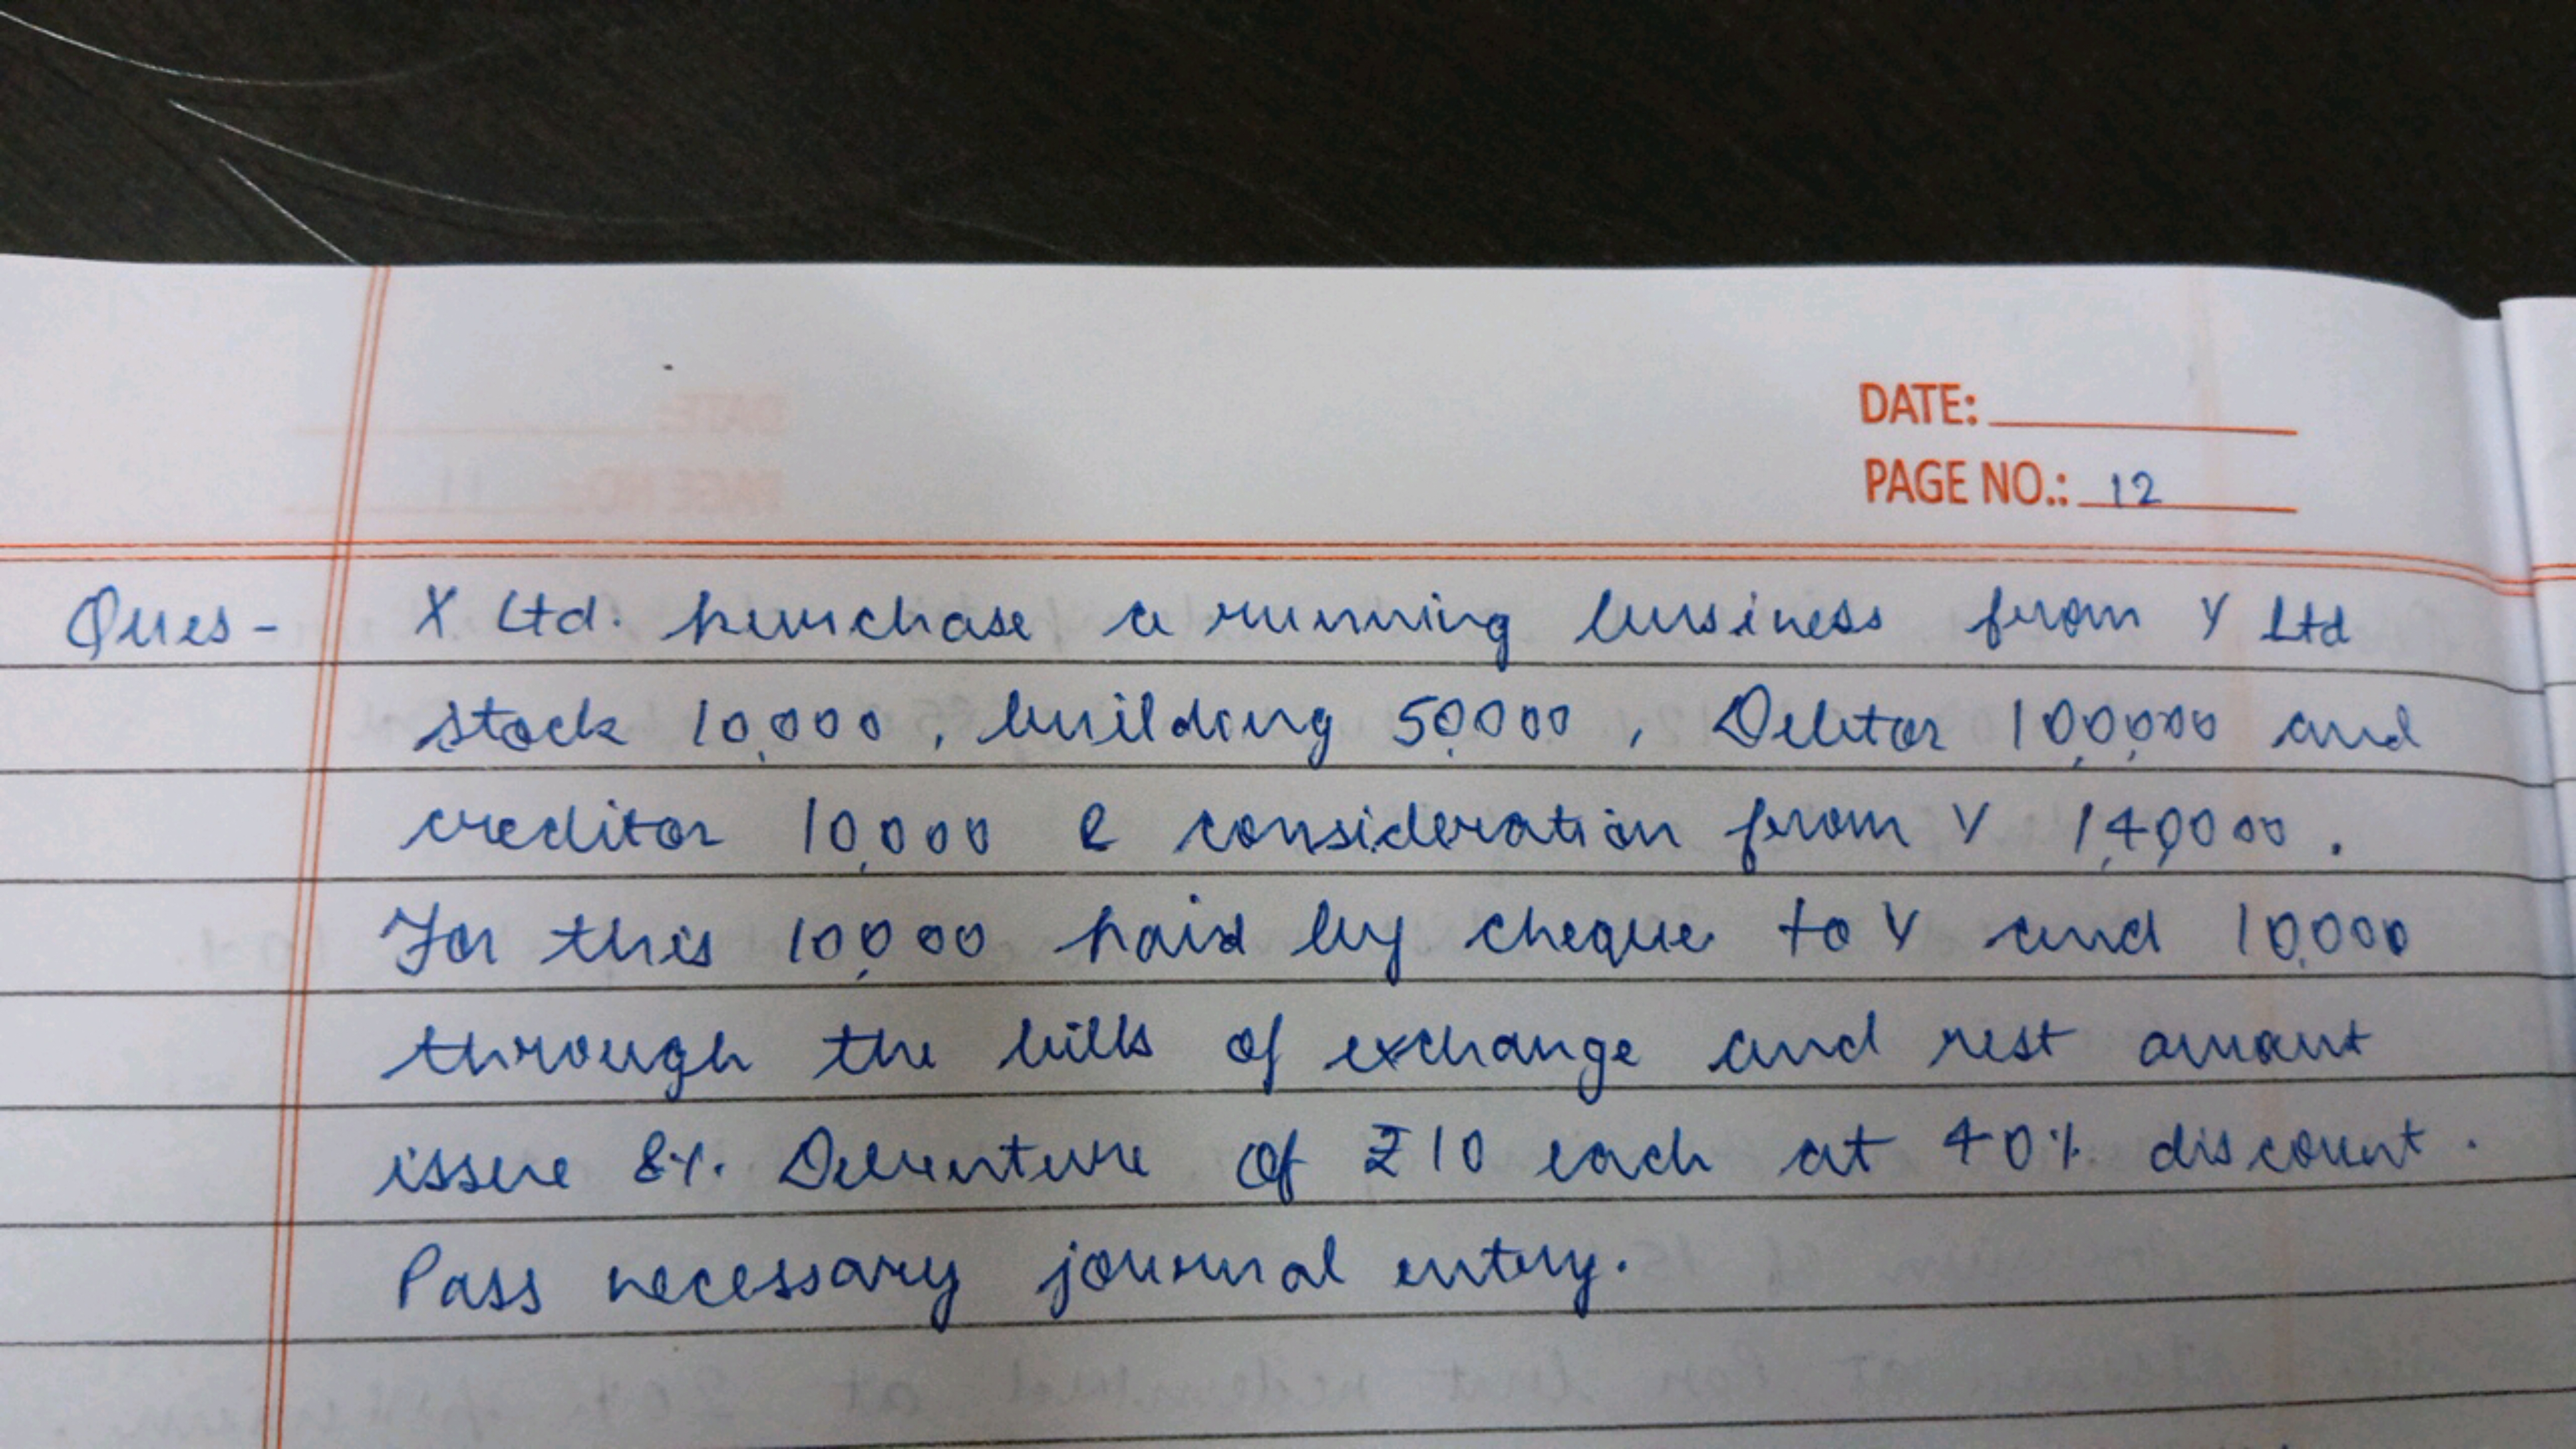 DATE:
PAGE NO.: 12
Ques - X Ltd. purchase a running business from Y Ltd
stock 10,000, building 50,000, Debtor 1,00,000 and
creditor 10,000 & consideration from Y 1,40,000.
For this 10,000 paid by cheque to Y and 10,000
through the bills of exchange and rest amount
issue 8%. Debenture of ₹10 each at 40% discount.
Pass necessary journal entry.